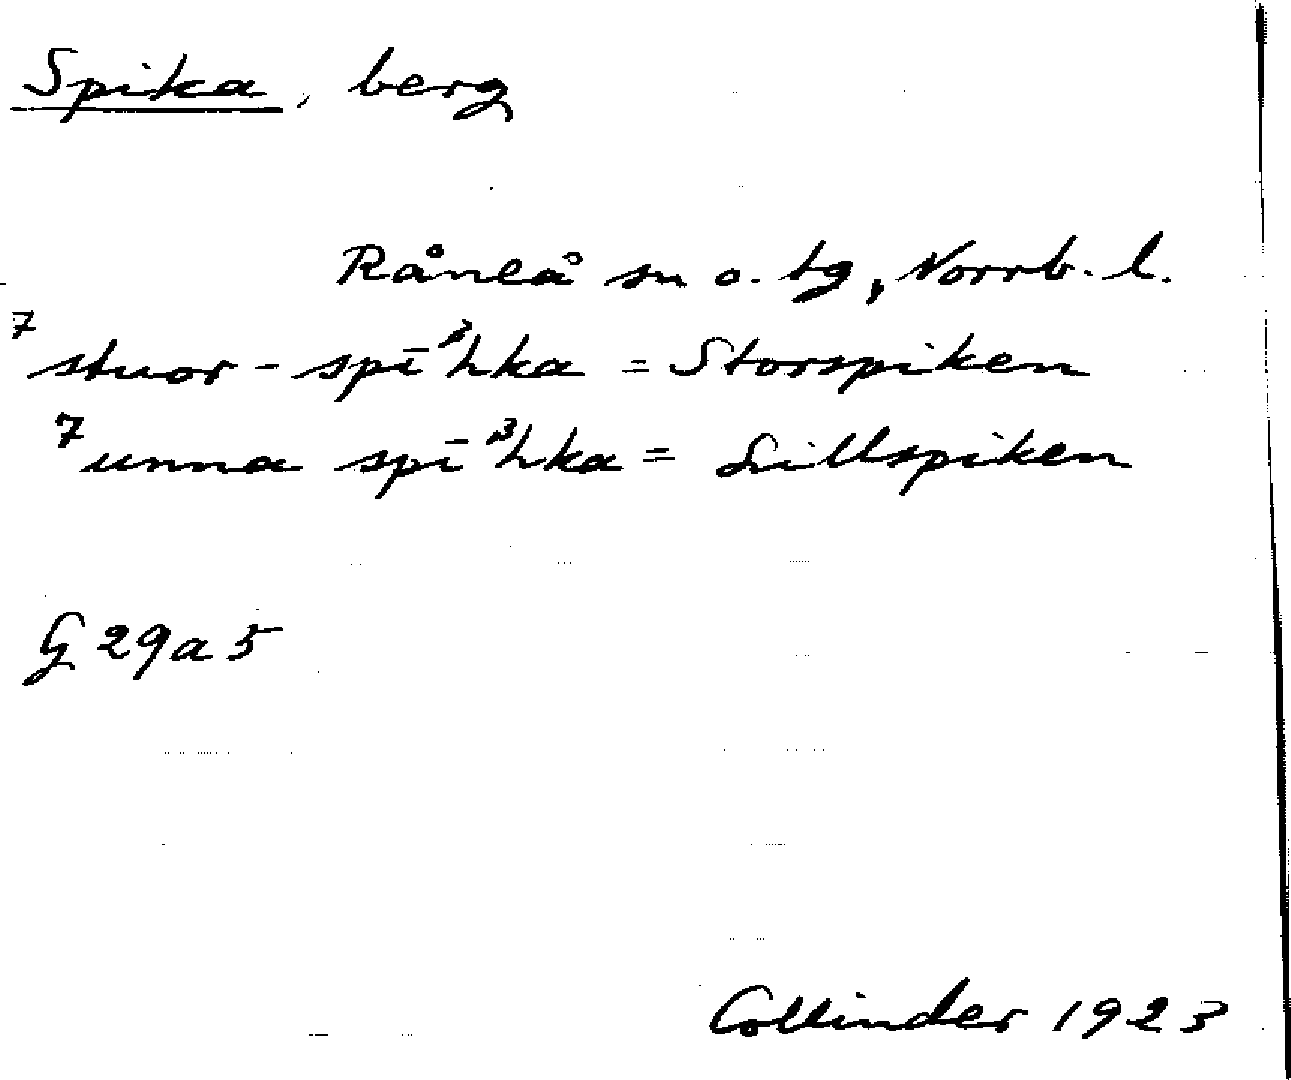 Spika, berg
Råneå sn o. tg, Norrb. l.
⁷stuor-spī³hka = Storspiken
⁷unna spī³hka = Lillspiken
G 29a 5
Collinder 1923